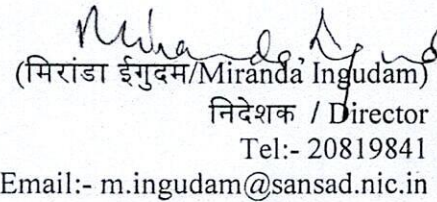 (मिरांडा ईगुदम/Miranda Ingudam)
निदेशक / Director
Tel:- 20819841
Email:- m.ingudam@sansad.nic.in